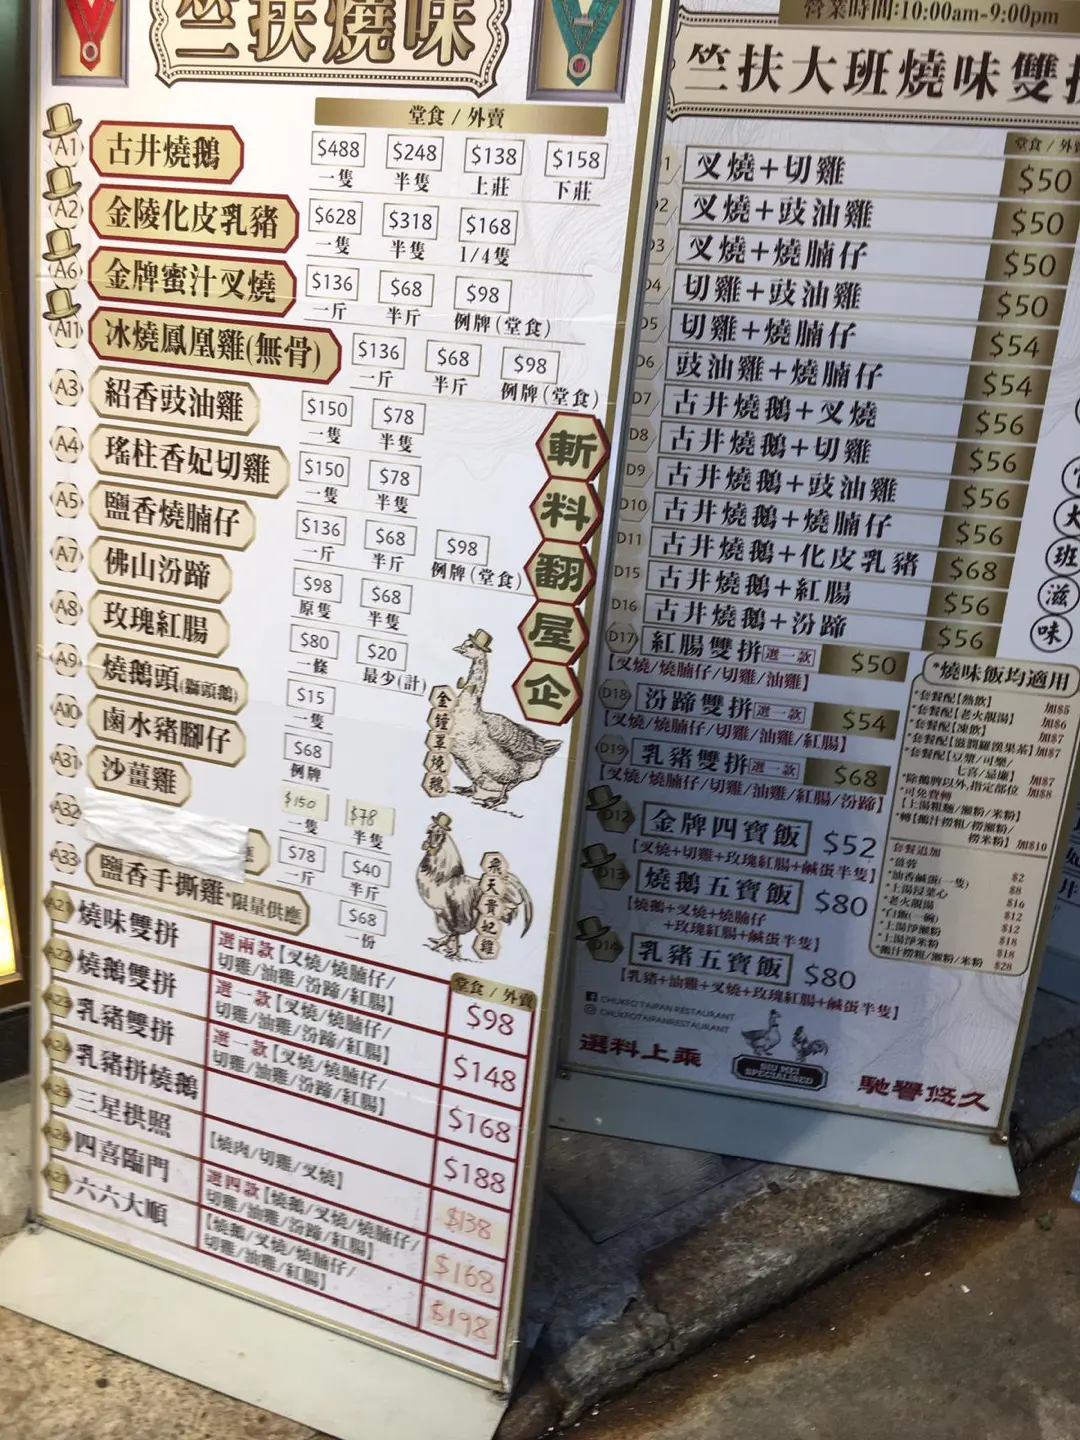 竺扶燒味
堂食 / 外賣
A1 古井燒鵝 $488 一隻 $248 半隻 $138 上莊 $158 下莊
A2 金陵化皮乳豬 $628 一隻 $318 半隻 $168 1/4隻
A6 金牌蜜汁叉燒 $136 一斤 $68 半斤 $98 例牌(堂食)
A11 冰燒鳳凰雞(無骨) $136 一斤 $68 半斤 $98 例牌(堂食)
A3 紹香豉油雞 $150 一隻 $78 半隻
A4 瑤柱香妃切雞 $150 一隻 $78 半隻
A5 鹽香燒腩仔 $136 一斤 $68 半斤 $98 例牌(堂食)
A7 佛山汾蹄 $98 原隻 $68 半隻
A8 玫瑰紅腸 $80 一條 $20 最少(計)
A9 燒鵝頭(獅頭鵝) $15 一隻
A10 鹵水豬腳仔 $68 例牌
A31 沙薑雞 $150 一隻 $78 半隻
A32 應 $78 一斤 $40 半斤
A33 鹽香手撕雞*限量供應 $68 一份
斬料翻屋企
金鐘草燒鵝
飛天貴妃雞
堂食 / 外賣
A21 燒味雙拼 選兩款【叉燒/燒腩仔/
切雞/油雞/汾蹄/紅腸】 $98
A22 燒鵝雙拼 選一款【叉燒/燒腩仔/
切雞/油雞/汾蹄/紅腸】 $148
A23 乳豬雙拼 選一款【叉燒/燒腩仔/
切雞/油雞/汾蹄/紅腸】 $168
A24 乳豬拼燒鵝 $188
A25 三星拱照 【燒肉/切雞/叉燒】 $138
A26 四喜臨門 選四款【燒鵝/叉燒/燒腩仔/
切雞/油雞/汾蹄/紅腸】 $168
A27 六六大順 【燒鵝/叉燒/燒腩仔/
切雞/油雞/紅腸】 $198
營業時間:10:00am-9:00pm
竺扶大班燒味雙
堂食 / 外
1 叉燒+切雞 $50
2 叉燒+豉油雞 $50
3 叉燒+燒腩仔 $50
D4 切雞+豉油雞 $50
D5 切雞+燒腩仔 $54
D6 豉油雞+燒腩仔 $54
D7 古井燒鵝+叉燒 $56
D8 古井燒鵝+切雞 $56
D9 古井燒鵝+豉油雞 $56
D10 古井燒鵝+燒腩仔 $56
D11 古井燒鵝+化皮乳豬 $68
D15 古井燒鵝+紅腸 $56
D16 古井燒鵝+汾蹄 $56
D17 紅腸雙拼 選一款 $50
【叉燒/燒腩仔/切雞/油雞】
D18 汾蹄雙拼 選一款 $54
【叉燒/燒腩仔/切雞/油雞/紅腸】
D19 乳豬雙拼 選一款 $68
【叉燒/燒腩仔/切雞/油雞/紅腸/汾蹄】
D12 金牌四寶飯 $52
【叉燒+切雞+玫瑰紅腸+鹹蛋半隻】
D13 燒鵝五寶飯 $80
【燒鵝+叉燒+燒腩仔
+玫瑰紅腸+鹹蛋半隻】
D14 乳豬五寶飯 $80
【乳豬+油雞+叉燒+玫瑰紅腸+鹹蛋半隻】
大班滋味
*燒味飯均適用
*套餐配【熱飲】 加$5
*套餐配【老火靚湯】 加$6
*套餐配【凍飲】 加$7
*套餐配【滋潤羅漢果茶】 加$7
*套餐配【豆漿/可樂/
七喜/忌廉】 加$7
*除鵝髀以外,指定部位 加$8
*可免費轉
【上湯粗麵/瀨粉/米粉】
*轉【鵝汁撈粗/撈瀨粉/
撈米粉】 加$10
套餐追加
*薑蓉 $2
*油香鹹蛋(一隻) $8
*上湯浸菜心 $16
*老火靚湯 $12
*白飯(一碗) $12
*上湯淨瀨粉 $18
*上湯淨米粉 $18
*鵝汁撈粗/瀨粉/米粉 $28
CHUKFOTAIPAN RESTAURANT
CHUKFOTAIPANRESTAURANT
選料上乘
SIU MEI
SPECIALISED
馳譽悠久